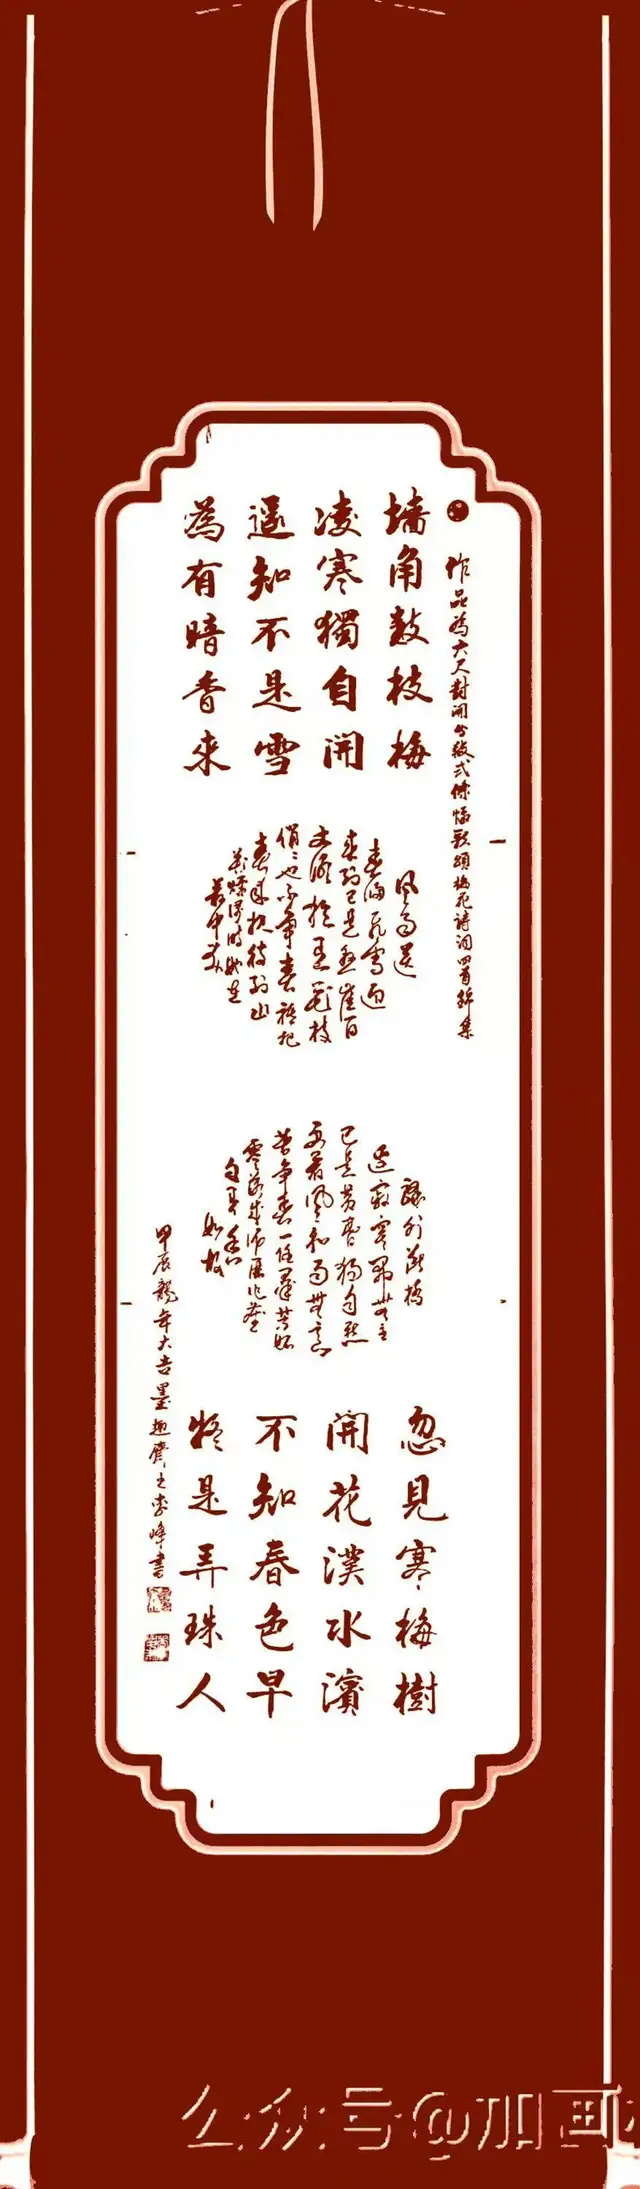 作品為六尺對開分段式條幅歌頌梅花詩詞四首錦集
墙角數枝梅
凌寒獨自開
遥知不是雪
為有暗香来
風雨送
春歸飛雪迎
春到已是懸崖百
丈冰猶有花枝
俏〻也不爭春祗把
春来报待到山
花爛漫時她在
叢中笑
驛外斷橋
邊寂寞開無主
已是黄昏獨自愁
更著風和雨無意
苦爭春一任群芳妒
零落成泥碾作塵
只有香
如故
忽見寒梅樹
開花漢水濱
不知春色早
疑是弄珠人
甲辰龍年大吉墨趣齋主李峰書
公众号@加画